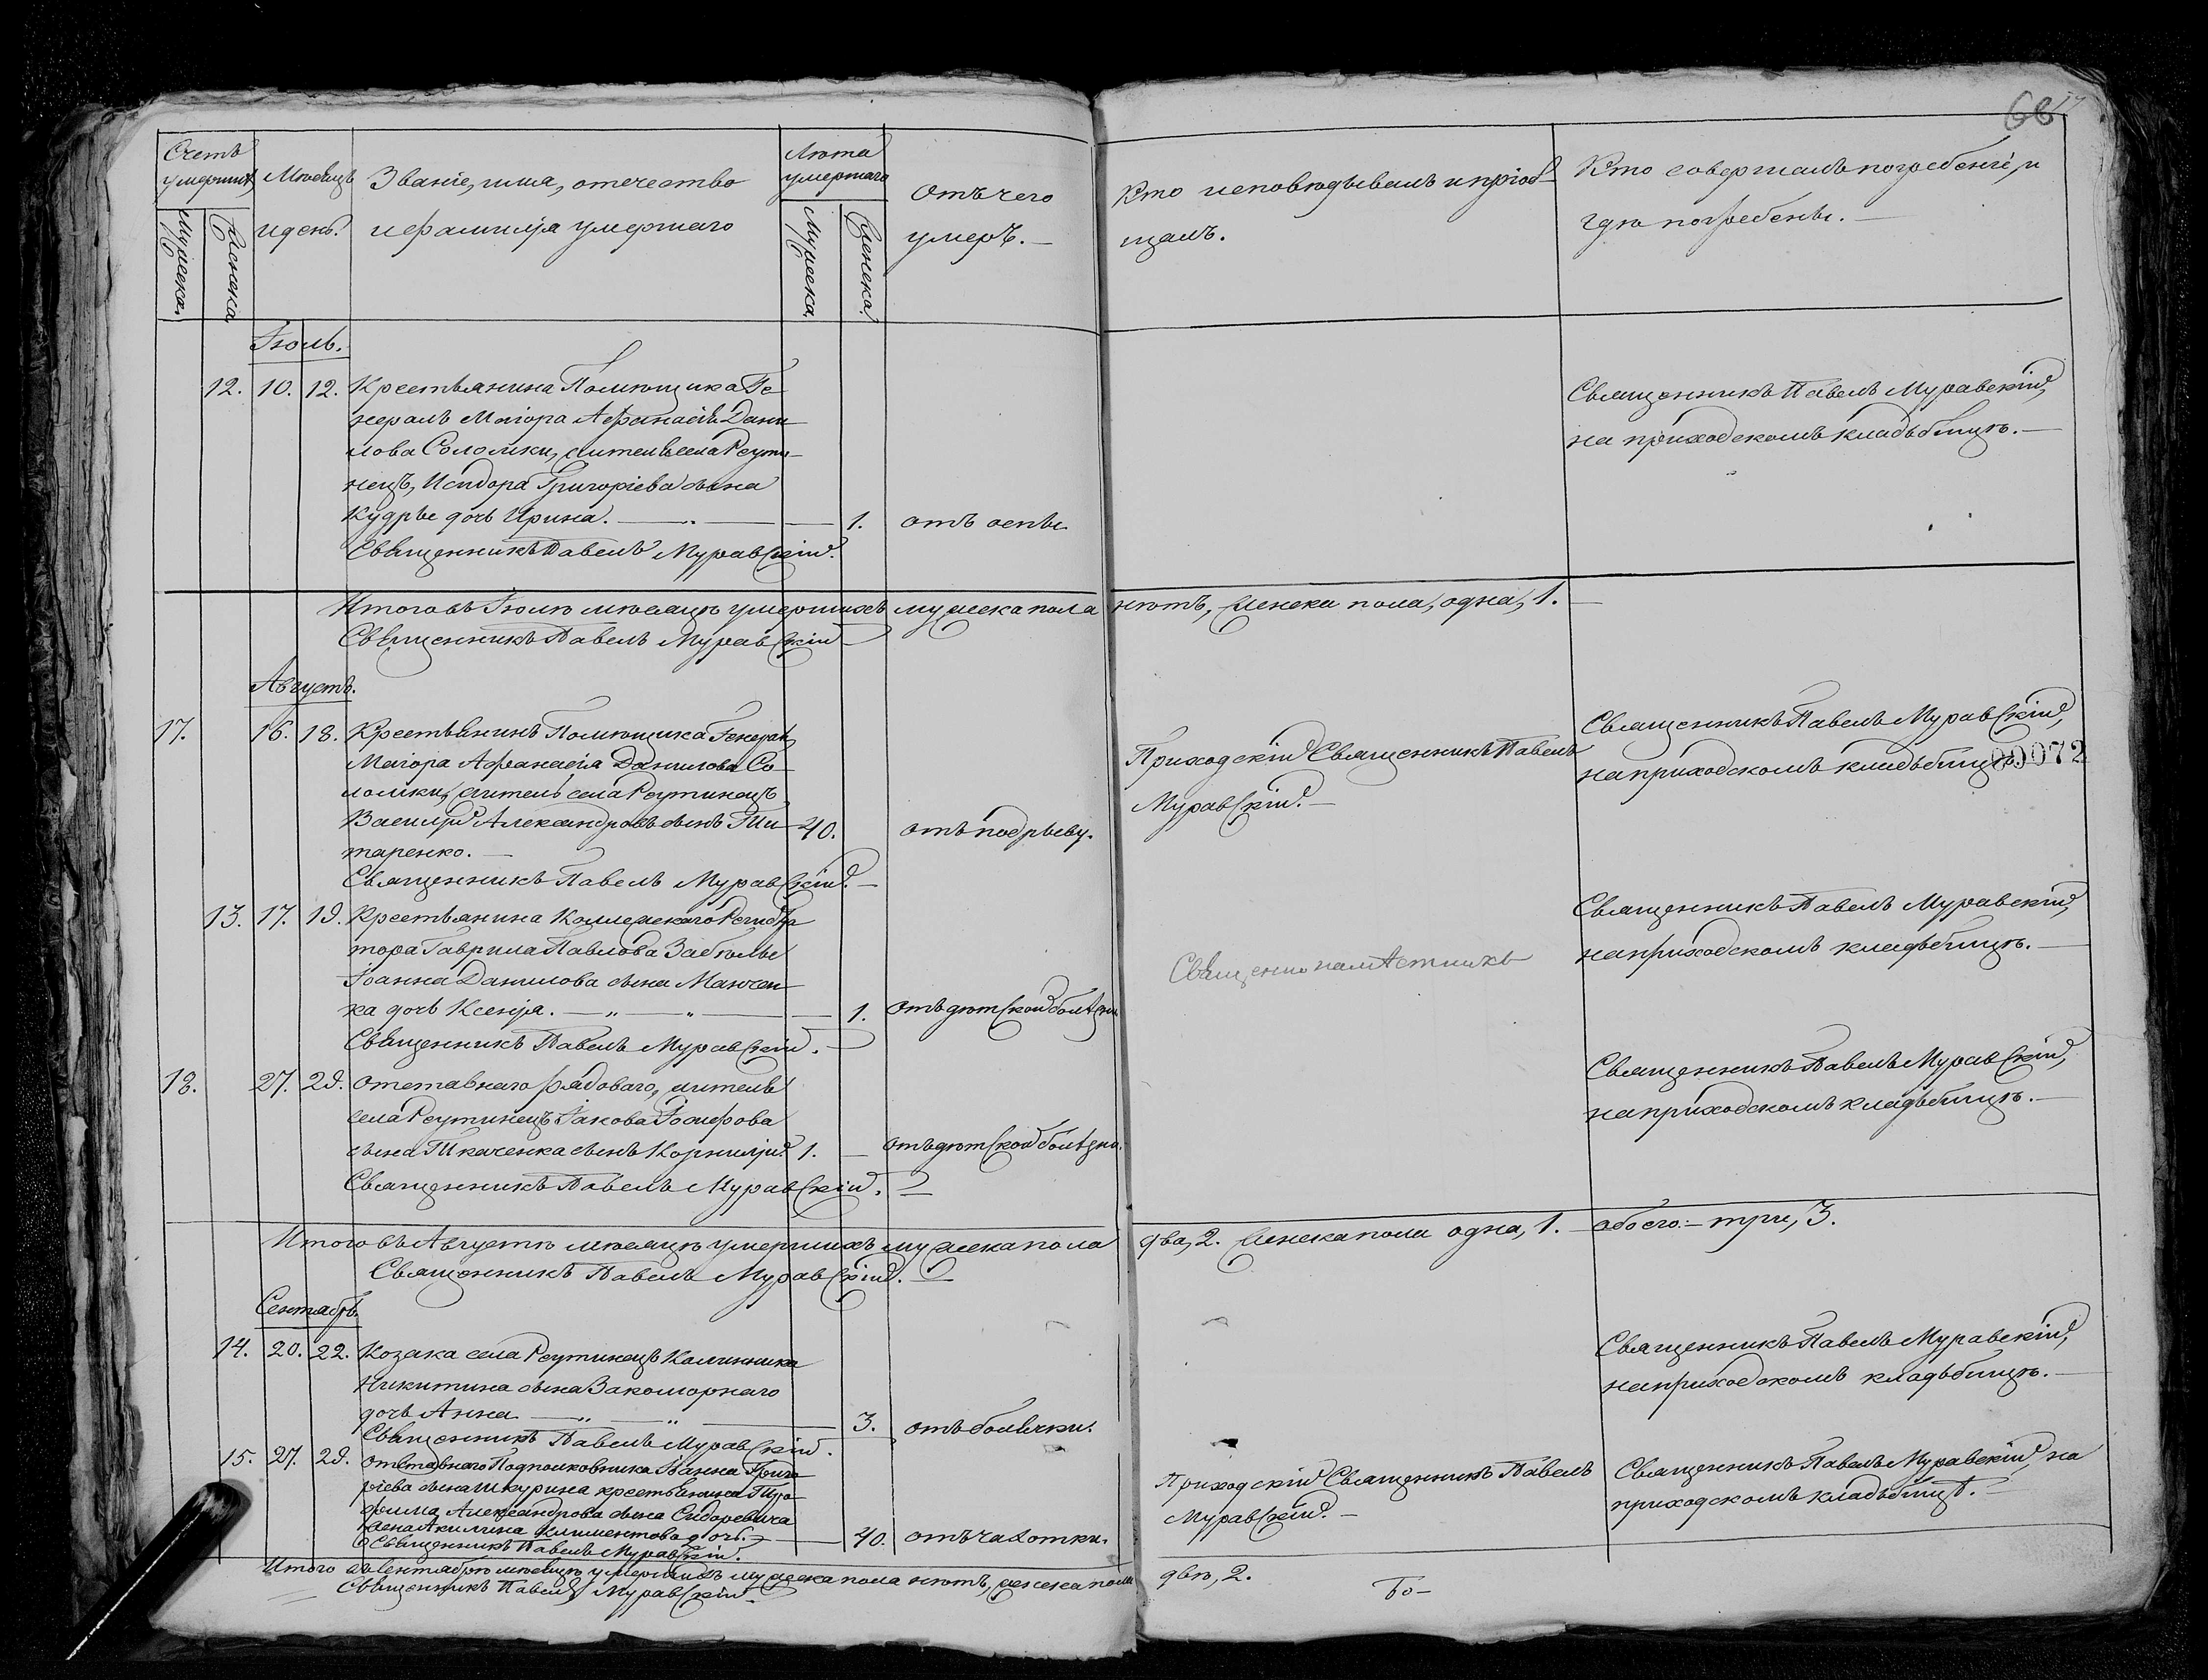 68
Счетъ умершихъ
Мужеска.
Женска
Мѣсяцъ
и день.
Званіе, имя, отечество
и фамилія умершаго
Лѣта умершаго
Мужеска.
Женска.
Отъ чего
умеръ. —
Кто исповѣдывалъ и пріоб-
щалъ.
Кто совершалъ погребеніе, и
гдѣ погребены. —
Іюль.
12. 10. 12. Крестьянина Помѣщика Ге-
нералъ Маіора Афанасія Дани-
лова Соломки, жителя села Реути-
нецъ, Исидора Григоріева сына
Кудры дочь Ирина. — 1. отъ оспы.
Священникъ Павелъ Муравскій.
Священникъ Павелъ Муравскій,
на приходскомъ кладъбищѣ. —
Итого въ Іюлѣ мѣсяцѣ умершихъ мужеска пола нѣтъ, женска пола, одна, 1. —
Священникъ Павелъ Муравскій
Августъ.
17. 16. 18. Крестьянинъ Помѣщика Генералъ
Маіора Афанасія Данилова Со-
ломки, житель села Реутинецъ,
Василій Александровъ сынъ Ти- 40. отъ подрыву.
таренко. —
Священникъ Павелъ Муравскій. —
Приходскій Священникъ Павелъ
Муравскій. —
Священникъ Павелъ Муравскій,
на приходскомъ кладъбищѣ.
00072
13. 17. 19. Крестьянина Коллежскаго Регистра
тора Гаврила Павлова Забѣлы
Іоанна Данилова сына
ка дочь Ксенія. — 1. отъ дѣтской болѣзни
Священникъ Павелъ Муравскій. —
Священно
Священникъ Павелъ Муравскій,
на приходскомъ кладъбищѣ. —
18. 27. 29. Отставнаго рядоваго, жителя
села Реутинецъ Іакова Іосифова
сына Ткаченка сынъ Корнилій 1. — отъ дѣтской болѣзни.
Священникъ Павелъ Муравскій. —
Священникъ Павелъ Муравскій,
на приходскомъ кладъбищѣ. —
Итого въ Августѣ мѣсяцѣ умершихъ мужеска пола два, 2. женска пола одна, 1. — обоего — три, 3.
Священникъ Павелъ Муравскій. —
Сентябрь.
14. 20. 22. Козака села Реутинецъ Калинника
Никитина сына Закоморнаго
дочь Анна — 3. отъ болячки.
Священникъ Павелъ Муравскій.
Священникъ Павелъ Муравскій,
на приходскомъ кладъбищѣ. —
15. 27. 29. Отставнаго Подполковника Іоанна Григо-
ріева сына Шкурина крестьянина Тро-
фима Александрова сына Сидоревича
жена Акилина Климентова дочь. — 40. отъ чахотки.
Священникъ Павелъ Муравскій.
Приходскій Священникъ Павелъ
Муравскій. —
Священникъ Павелъ Муравскій, на
приходскомъ кладъбищѣ. —
Итого въ Сентябрѣ мѣсяцѣ умершихъ мужеска пола нѣтъ, женска пола двѣ, 2.
Священникъ Павелъ Муравскій.
То-